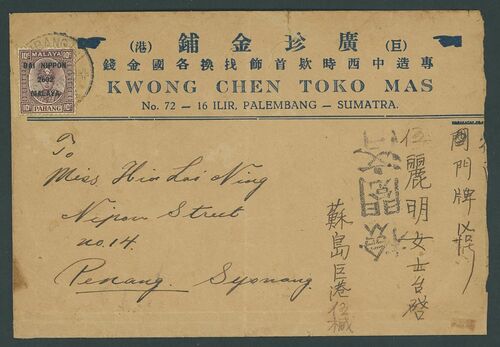 (港) 舖金珍廣 (巨)
錢金國各換找飾首款時西中造專
KWONG CHEN TOKO MAS
No. 72 — 16 ILIR, PALEMBANG — SUMATRA.
10c MALAYA 10c
DAI NIPPON
2602
MALAYA
PAHANG
To
Miss Hio Loi Ning
Nipon Street
no. 14.
Penang. Syonang.
門牌
伍麗明女士台啓
檢閱濟
蘇島巨港伍緘